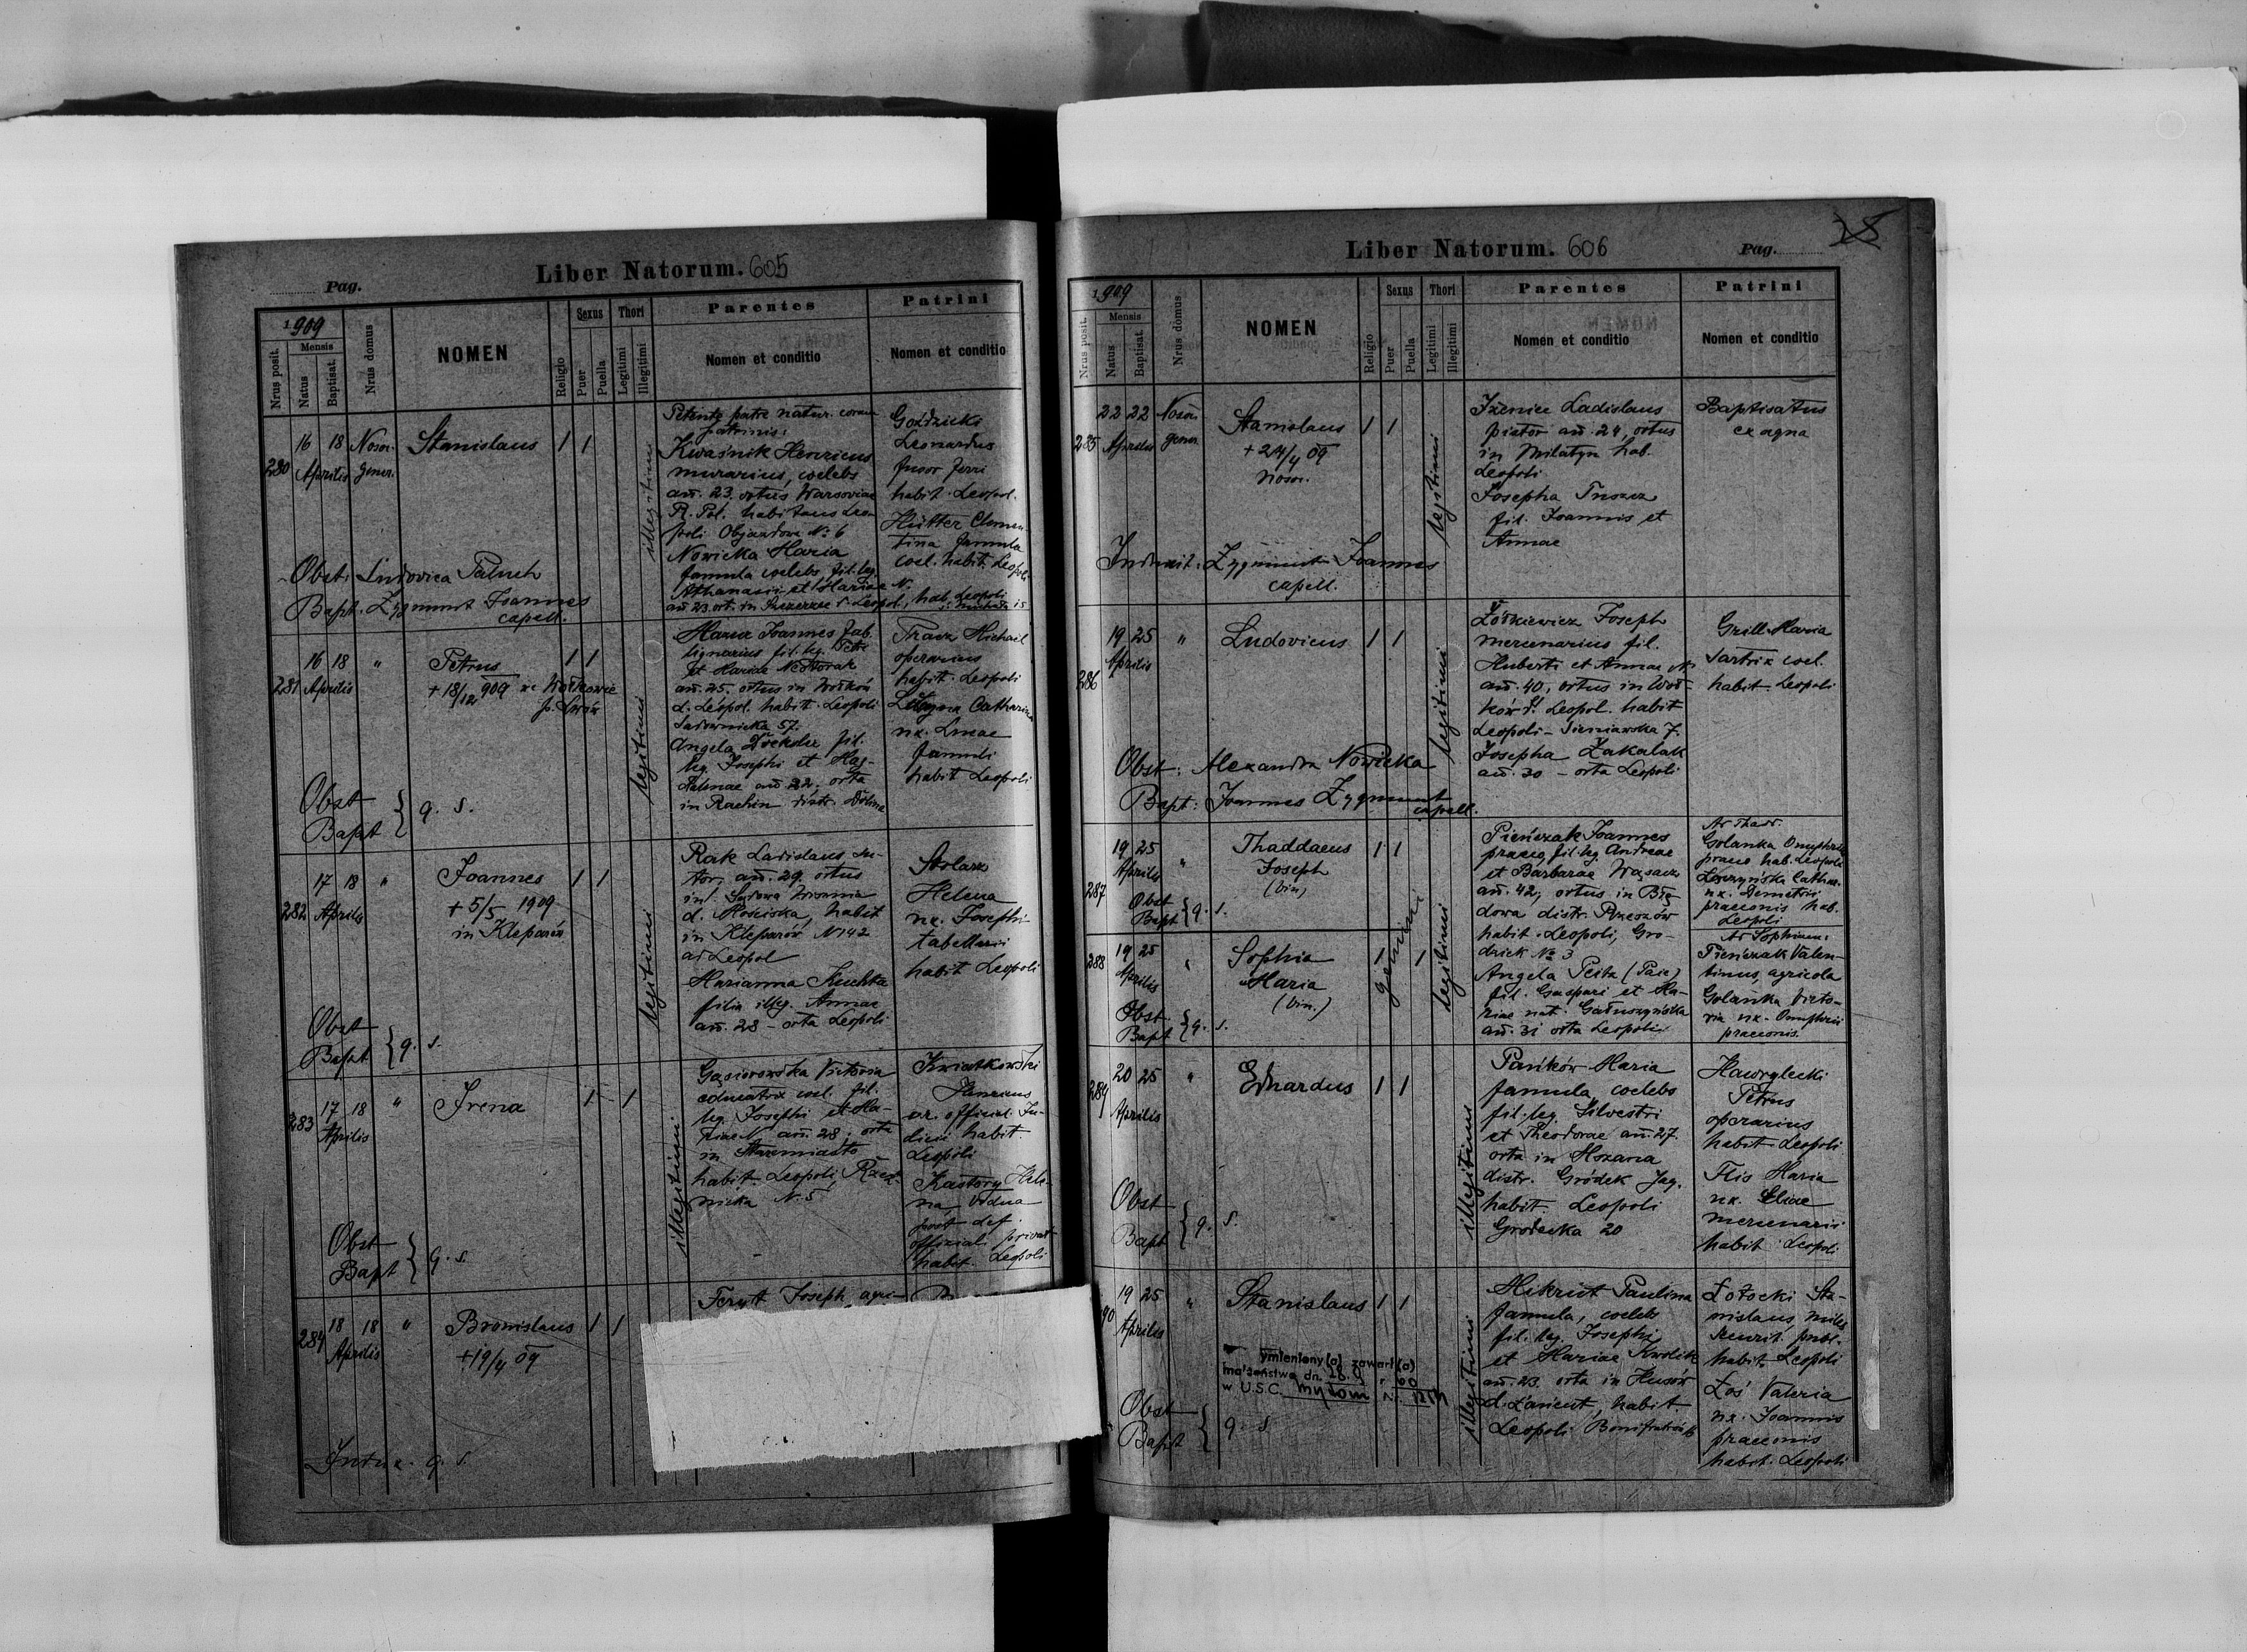 Pag.
Liber Natorum. 605
1909
Nrus posit.
Mensis
Natus
Baptisat.
Nrus domus
NOMEN
Religio
Sexus
Puer
Puella
Thori
Legitimi
Illegitimi
Parentes
Nomen et conditio
Patrini
Nomen et conditio
280
16 18
Aprilis
Nosoc.
gener.
Stanislaus
1 1
illegitimi
Petente patre natur. coram
patrinis:
Kwaśnik Henricus
murarius, coelebs
an. 23. ortus Warsoviae
R. Pol. habitans Leo-
poli Objazdowa No 6
Nowicka Maria
famula coelebs fil. leg.
Athanasii et Mariae N.
Goździcki
Leonardus
fusor ferri
habit. Leopol.
Hütter Clemen-
tina famula
coel. habit. Leopoli
Obst. Ludovica Paluch
Bapt. Zygmunt Joannes
capell.
281
16 18
Aprilis
"
Petrus
+ 18/12 909
1 1
legitimi
Joannes fab.
lignarius fil. leg. Petri
et Mariae
an. 25. ortus in
d. Leopol. habit Leopoli
Sadownicka 57.
Angela fil.
leg. Josephi et Mag-
dalenae an 22, orta
in Rachin distr. Dolina
Tracz Michael
operarius
habit. Leopoli
Catharina
ux. Lucae
famuli
habit Leopoli
Obst
Bapt } q. s.
282
17 18
Aprilis
"
Joannes
+ 5/5 1909
in Kleparów
1 1
legitimi
Rak Ladislaus, su-
tor, an. 29. ortus
in Sądowa Wisznia
d. Mościska, habit
in Kleparów N 142
ad Leopol
Marianna Kuchta
filia illeg. Annae
an. 28 - orta Leopoli
Stolarz
Helena
ux. Josephi
tabellarii
habit Leopoli
Obst
Bapt } q. s.
283
17 18
Aprilis
"
Irena
1 1
illegitimi
Gąsiorowska Victoria
educatrix coel. fil.
leg. Josephi et Ma-
riae N an. 28, orta
in Staremiasto
habit Leopoli, Rzeź-
nicka N. 5
Kwiatkowski
Henricus
official. Ju-
dicii habit.
Leopoli
Kastory Hele-
na, vidua
post def.
official. privat
habit. Leopoli
Obst
Bapt } q. s.
284
18 18
Aprilis
"
Bronislaus
+ 19/4 09
1 1
Feryt Joseph agri-
q. s.
Liber Natorum. 606
Pag.
1909
Nrus posit.
Mensis
Natus
Baptisat.
Nrus domus
NOMEN
Religio
Sexus
Puer
Puella
Thori
Legitimi
Illegitimi
Parentes
Nomen et conditio
Patrini
Nomen et conditio
285
22 22
Aprilis
Nosoc.
gener.
Stanislaus
+ 24/4 09
nosoc.
1 1
legitimi
Ladislaus
pistor an. 24, ortus
in Milatyn hab.
Leopoli
Josepha
fil. Joannis et
Annae
Baptisatus
ex aqua
Zygmunt Joannes
capell.
286
19 25
Aprilis
"
Ludovicus
1 1
legitimi
Żółkiewicz Joseph
mercenarius fil.
Huberti et Annae N
an. 40, ortus in Woł-
ków d. Leopol. habit
Leopoli - Sieniawska 7.
Josepha Zakalak
an. 30 - orta Leopoli
Grill Maria
sartrix coel.
habit Leopoli
Obst: Alexandra Nowicka
Bapt: Joannes Zygmunt
capell.
287
19 25
Aprilis
"
Thaddaeus
Joseph
(bin)
1 1
gemini
legitimi
Obst
Bapt } q. s.
Pieńczak Joannes
praeco, fil. leg. Andreae
et Barbarae Wąsacz
an. 42, ortus in Błę-
dowa distr. Rzeszów
habit. Leopoli, Gro-
dzick No 3
Angela Peitz (Paic)
fil. Gaspari et Ma-
riae nat. Gałuszyńska
an. 31 orta Leopoli
Ad Thadd.
Golanka Onuphrius
praeco hab. Leopoli
Cathar.
ux. Demetrii
praeconis hab.
Leopoli
288
19 25
Aprilis
"
Sophia
Maria
(bin.)
1 1
Obst.
Bapt } q. s.
Ad Sophiam:
Pieńczak Valen-
tinus, agricola
Golanka Victo-
ria ux. Onuphrii
praeconis.
289
20 25
Aprilis
"
Eduardus
1 1
illegitimi
Pańków Maria
famula, coelebs
fil. leg. Silvestri
et Theodorae an. 27.
orta in Mszana
distr. Gródek Jag.
habit. Leopoli
Grodecka 20
Hawrylecki
Petrus
operarius
habit Leopoli
Flis Maria
ux. Eliae
mercenarii
habit Leopoli
Obst
Bapt } q. s.
19 25
Aprilis
"
Stanislaus
1 1
illegitimi
Mikrut Paulina
famula, coelebs
fil. leg. Josephi
et Mariae Królik
an. 23. orta in Husów
d. Łańcut, habit.
Leopoli Bonifratrów
Zołocki Sta-
nislaus miles
securit. publ.
habit Leopoli
Łoś Valeria
ux. Joannis
praeconis
habit. Leopoli
ymieniony(a) zawarł(a)
małżeństwo dn.
w U.S.C. Bytom
Obst
Bapt } q. s.